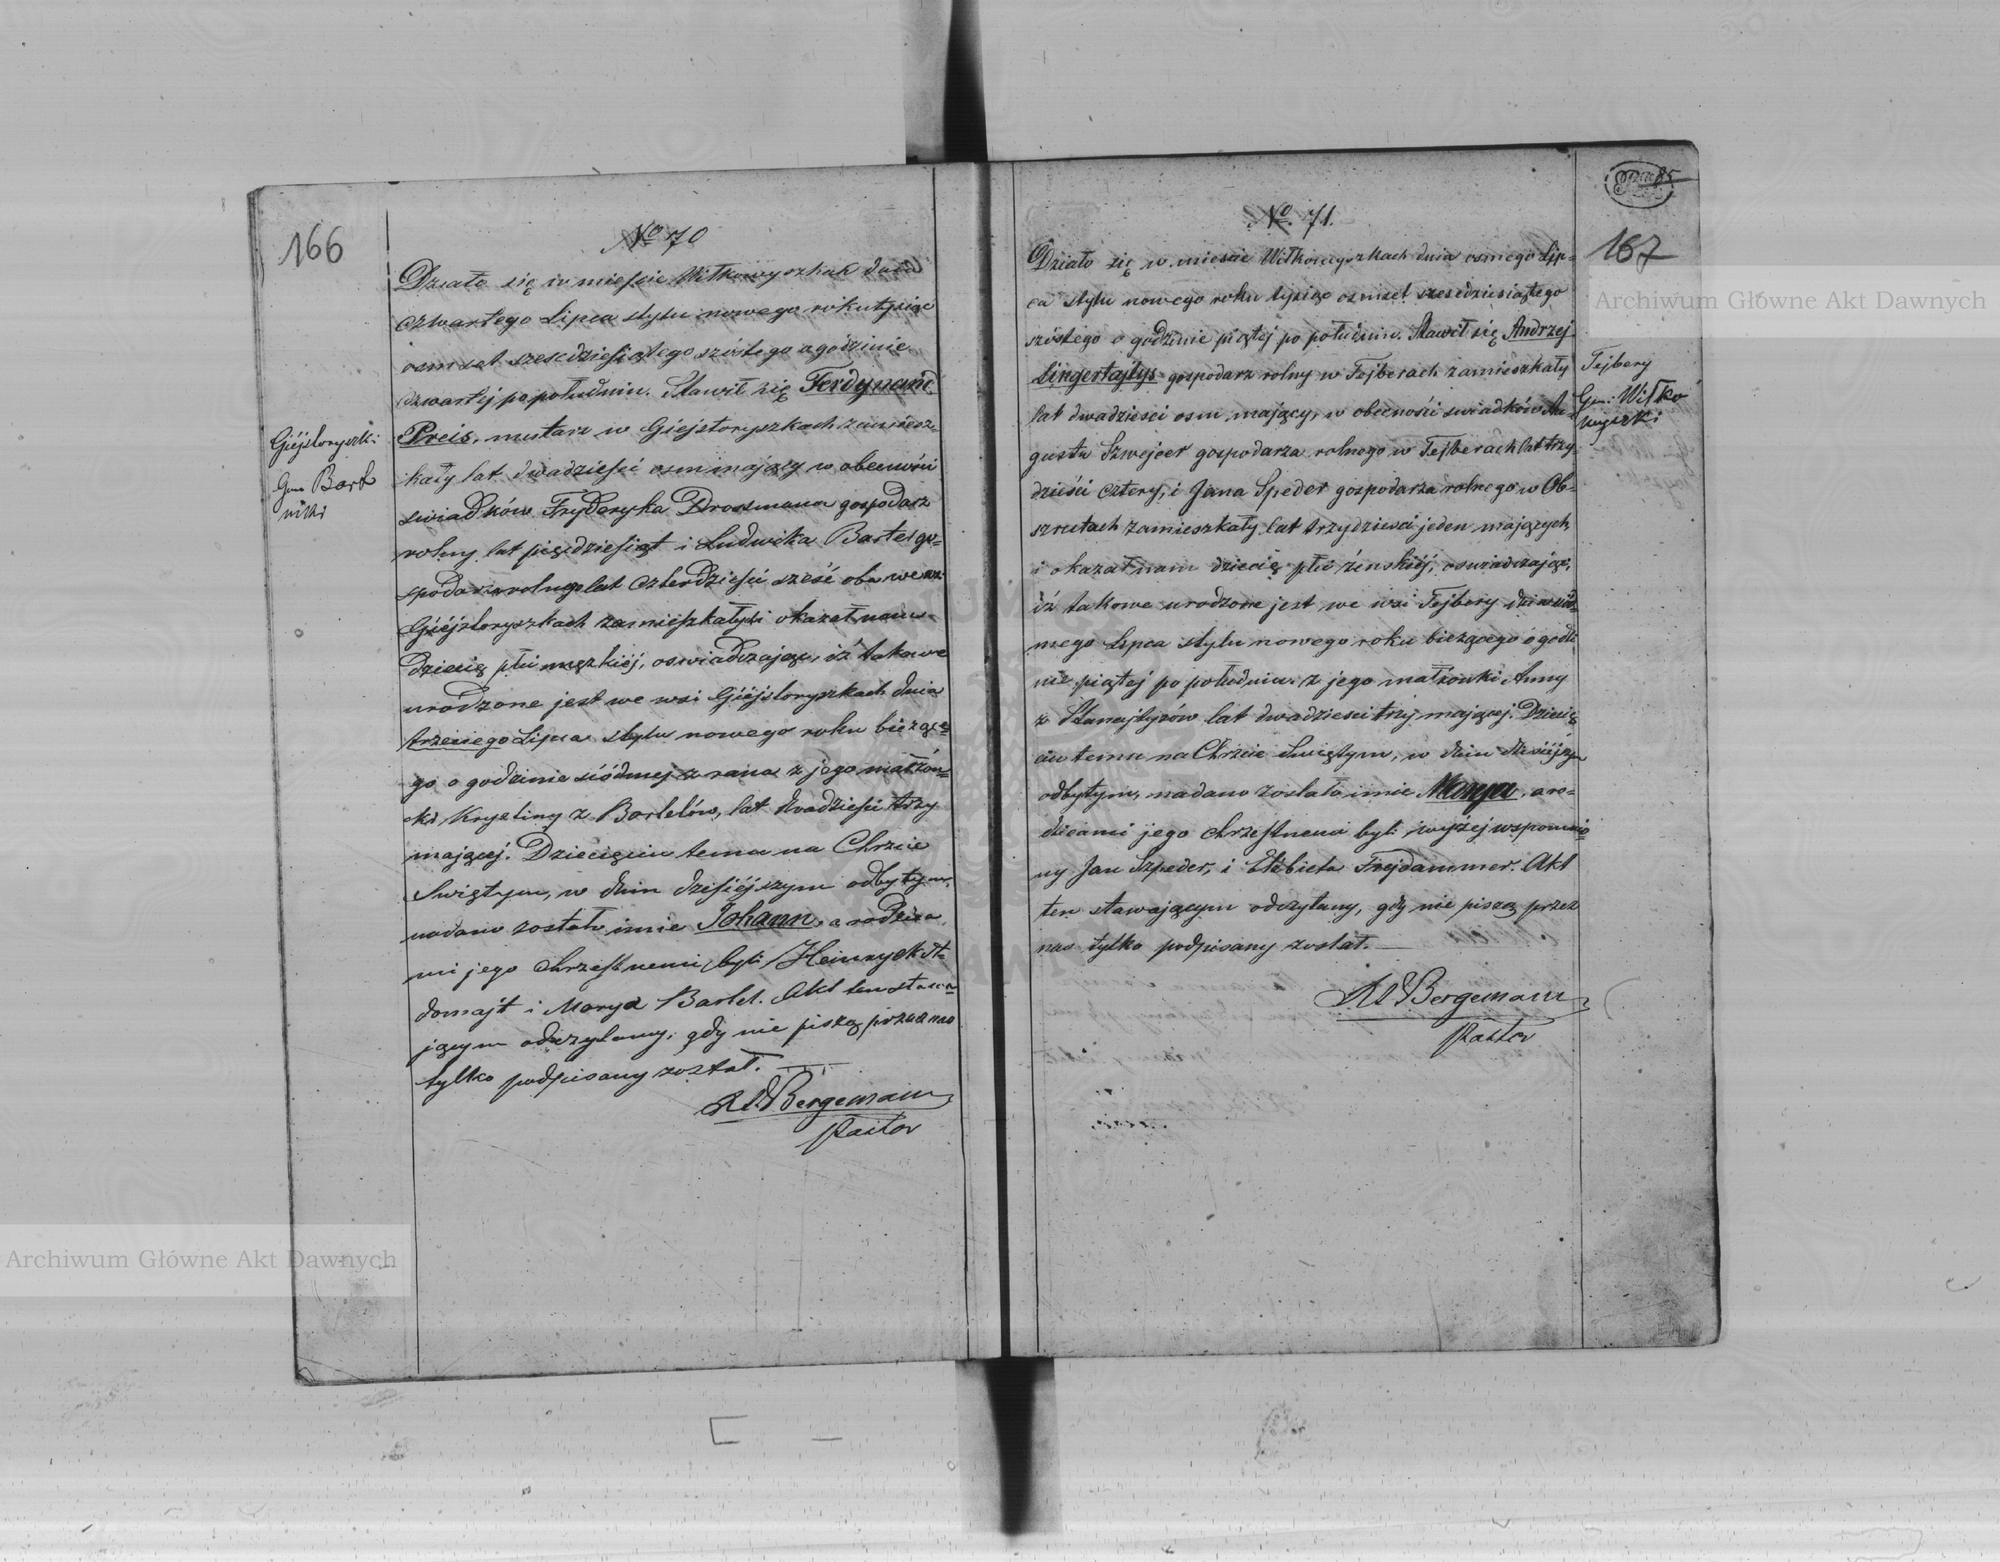 166
No 70
Działo się w mieście Wiłkowyszkach dnia
czwartego Lipca stylu nowego roku tysiąc
osmset szescdziesiątego szóstego o godzinie
czwartej po południu. Stawił się Ferdynand
Preis, mularz w Giejstoryszkach zamiesz-
kały lat dwadzieści osm mający w obecności
swiadków Fryderyka Drossmana gospodarz
rolny lat pięćdziesiąt i Ludwika Bartel go-
spodarza rolnego lat czterdzieści sześć oba we wsi
Giejstoryszkach zamieszkałych i okazał nam
dziecię płci męzkiéj, oswiadczając, iż takowe
urodzone jest we wsi Giejstoryszkach dnia
trzeciego Lipca stylu nowego roku bieżące-
go o godzinie siódmej z rana z jego małżon-
ki Krystiny z Bartelów, lat dwadzieści trzy
mającej. Dziecięciu temu na Chrzcie
Swiętym, w dniu dzisiéjszym odbytym,
nadano zostało imie Johann, a rodzica
mi jego chrzestnemi byli Heinryck A-
domajt i Marya Bartel. Akt ten stawa-
jącym odczytany, gdy nie piszą przez nas
tylko podpisany został.
Bergemann
Pastor
Giejstoryszki
Gmi Bart
niki
85
167
No. 71.
Działo się w miescie Wiłkowyszkach dnia osmego Lip-
ca stylu nowego roku tysiąc osmset szescdziesiątego
szóstego o godzinie piątej po południu. Stawił się Andrzej
Lingertajtys gospodarz rolny w Tejberach zamieszkały
lat dwadziesci osm mający, w obecności swiadków Au-
gusta Szwejcer gospodarza rolnego w Tejberach lat trzy
dzieści cztery, i Jana Speder gospodarza rolnego w Ob-
szrutach zamieszkały lat trzydziesci jeden mających
i okazał nam dziecię płci żeńskiéj, oswiadczając,
iż takowe urodzone jest we wsi Tejbery dnia siód-
mego Lipca stylu nowego roku bieżącego o godzi-
nie piątej po południu z jego małżonki Anny
z Stanajtysów lat dwadziesci trzy mającej. Dziecię
ciu temu na Chrzcie Swiętym, w dniu dzisiéjszym
odbytym, nadano zostało imie Marya, a ro-
dzicami jego chrzestnemi byli wyżéj wspomnio-
ny Jan Szpeder, i Elżbieta Frejdammer. Akt
ten stawającym odczytany, gdy nie piszą przez
nas tylko podpisany został.
Bergemann
Pastor
Tejbery
Gmi. Wiłko
wyszki
Archiwum Główne Akt Dawnych
Archiwum Główne Akt Dawnych